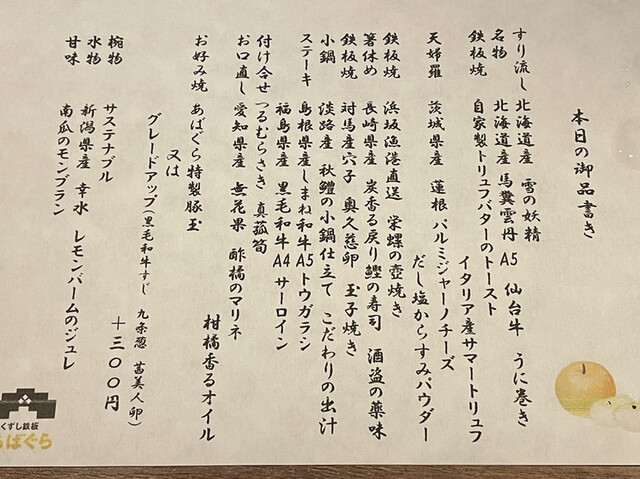 本日の御品書き
すり流し 北海道産 雪の妖精
名物 北海道産 馬糞雲丹 A5 仙台牛 うに巻き
鉄板焼 自家製トリュフバターのトースト
イタリア産サマートリュフ
天婦羅 茨城県産 蓮根 パルミジャーノチーズ
だし塩からすみパウダー
鉄板焼 浜坂漁港直送 栄螺の壺焼き
箸休め 長崎県産 炭香る戻り鰹の寿司 酒盗の薬味
鉄板焼 対馬産穴子 奥久慈卵 玉子焼き
小鍋 淡路産 秋鱧の小鍋仕立て こだわりの出汁
ステーキ 島根県産しまね和牛A5トウガラシ
福島県産 黒毛和牛A4 サーロイン
付け合せ つるむらさき 真菰筍
お口直し 愛知県産 無花果 酢橘のマリネ
柑橘香るオイル
お好み焼 あばぐら特製豚玉
又は
グレードアップ(黒毛和牛すじ 九条葱 茜美人卵)
+三〇〇円
椀物 サステナブル
水物 新潟県産 幸水 レモンバームのジュレ
甘味 南瓜のモンブラン
くずし鉄板
あばぐら